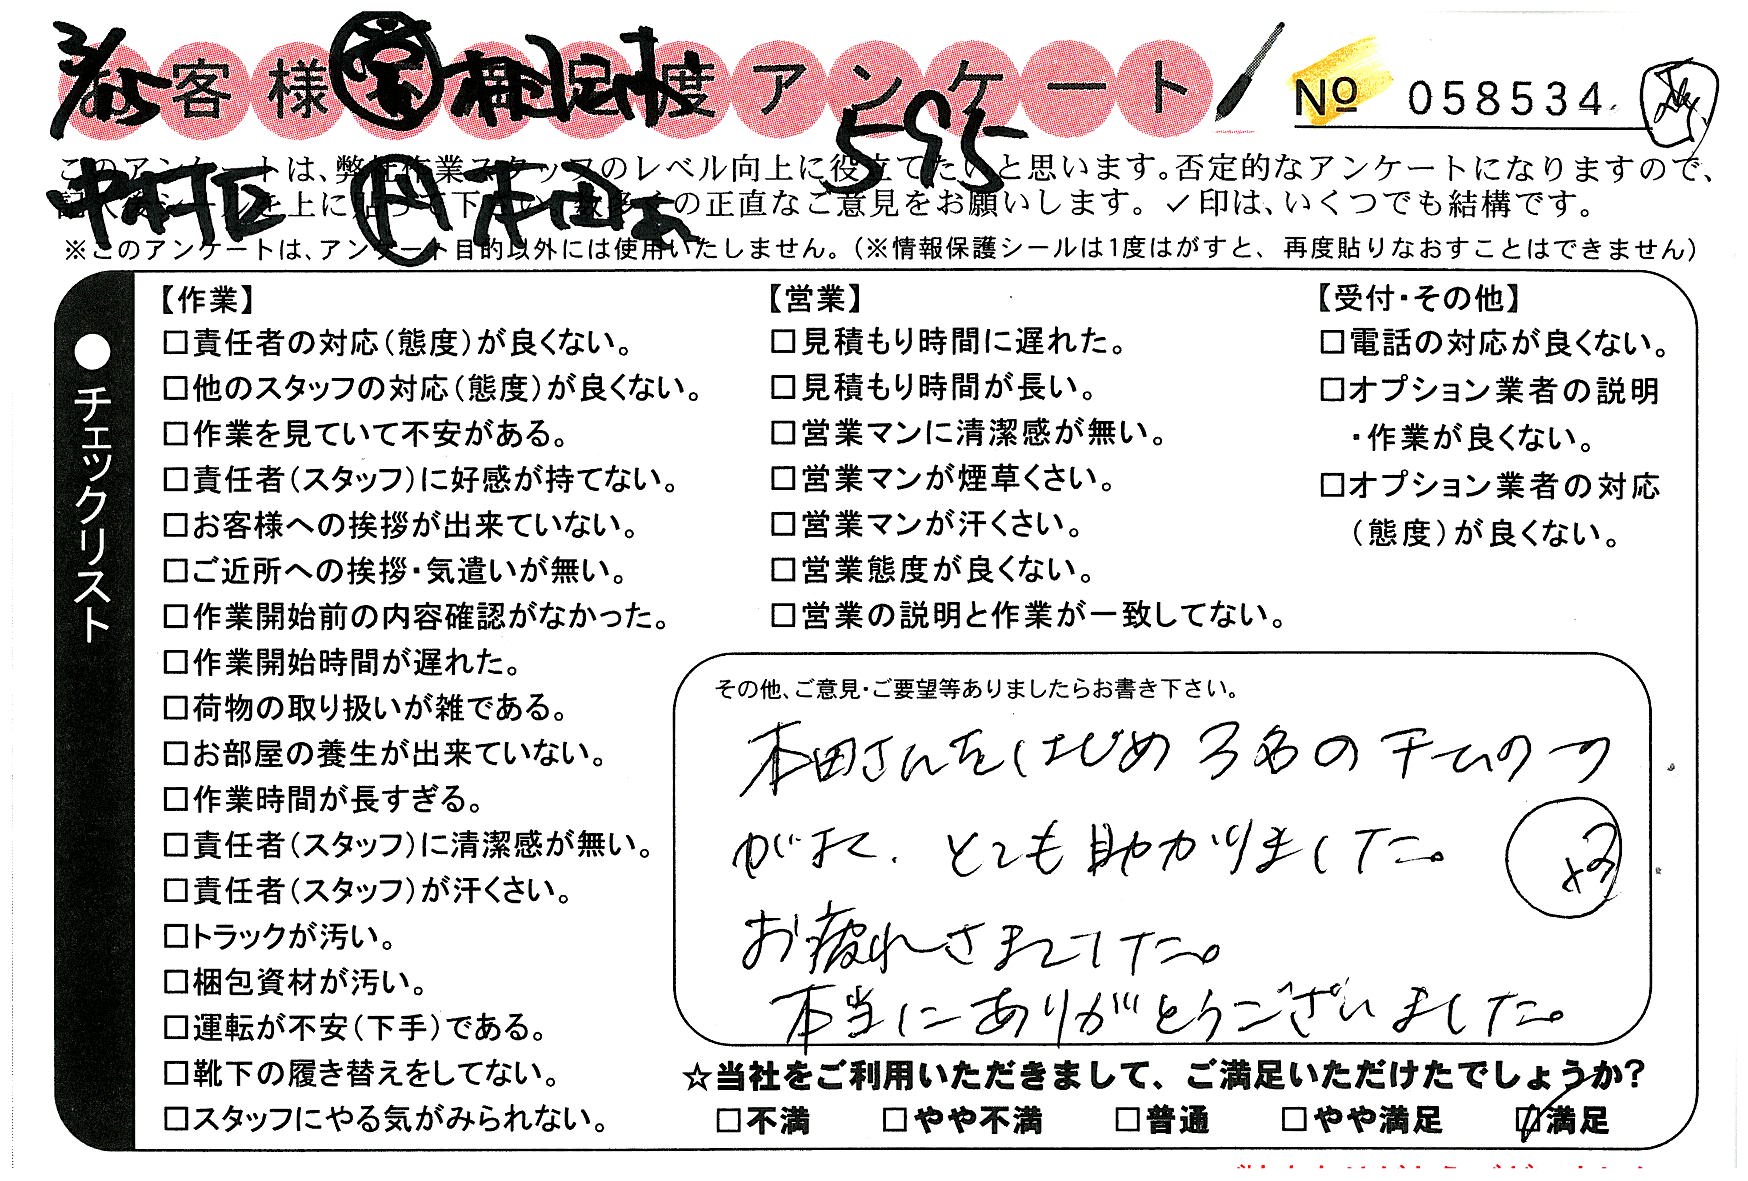 お客様不満足度アンケート
3/25
595
№ 058534
このアンケートは、弊社作業スタッフのレベル向上に役立てたいと思います。否定的なアンケートになりますので、
記入後シールを上に貼って下さい。数多くの正直なご意見をお願いします。✓印は、いくつでも結構です。
中村区 本田
※このアンケートは、アンケート目的以外には使用いたしません。(※情報保護シールは1度はがすと、再度貼りなおすことはできません)
●チェックリスト
【作業】
□責任者の対応(態度)が良くない。
□他のスタッフの対応(態度)が良くない。
□作業を見ていて不安がある。
□責任者(スタッフ)に好感が持てない。
□お客様への挨拶が出来ていない。
□ご近所への挨拶・気遣いが無い。
□作業開始前の内容確認がなかった。
□作業開始時間が遅れた。
□荷物の取り扱いが雑である。
□お部屋の養生が出来ていない。
□作業時間が長すぎる。
□責任者(スタッフ)に清潔感が無い。
□責任者(スタッフ)が汗くさい。
□トラックが汚い。
□梱包資材が汚い。
□運転が不安(下手)である。
□靴下の履き替えをしてない。
□スタッフにやる気がみられない。
【営業】
□見積もり時間に遅れた。
□見積もり時間が長い。
□営業マンに清潔感が無い。
□営業マンが煙草くさい。
□営業マンが汗くさい。
□営業態度が良くない。
□営業の説明と作業が一致してない。
【受付・その他】
□電話の対応が良くない。
□オプション業者の説明
・作業が良くない。
□オプション業者の対応
(態度)が良くない。
その他、ご意見・ご要望等ありましたらお書き下さい。
本田さんをはじめ3名のチームワーク
がよく、とても助かりました。
お疲れさまでした。
本当にありがとうございました。
☆当社をご利用いただきまして、ご満足いただけたでしょうか?
□不満 □やや不満 □普通 □やや満足 ☑満足